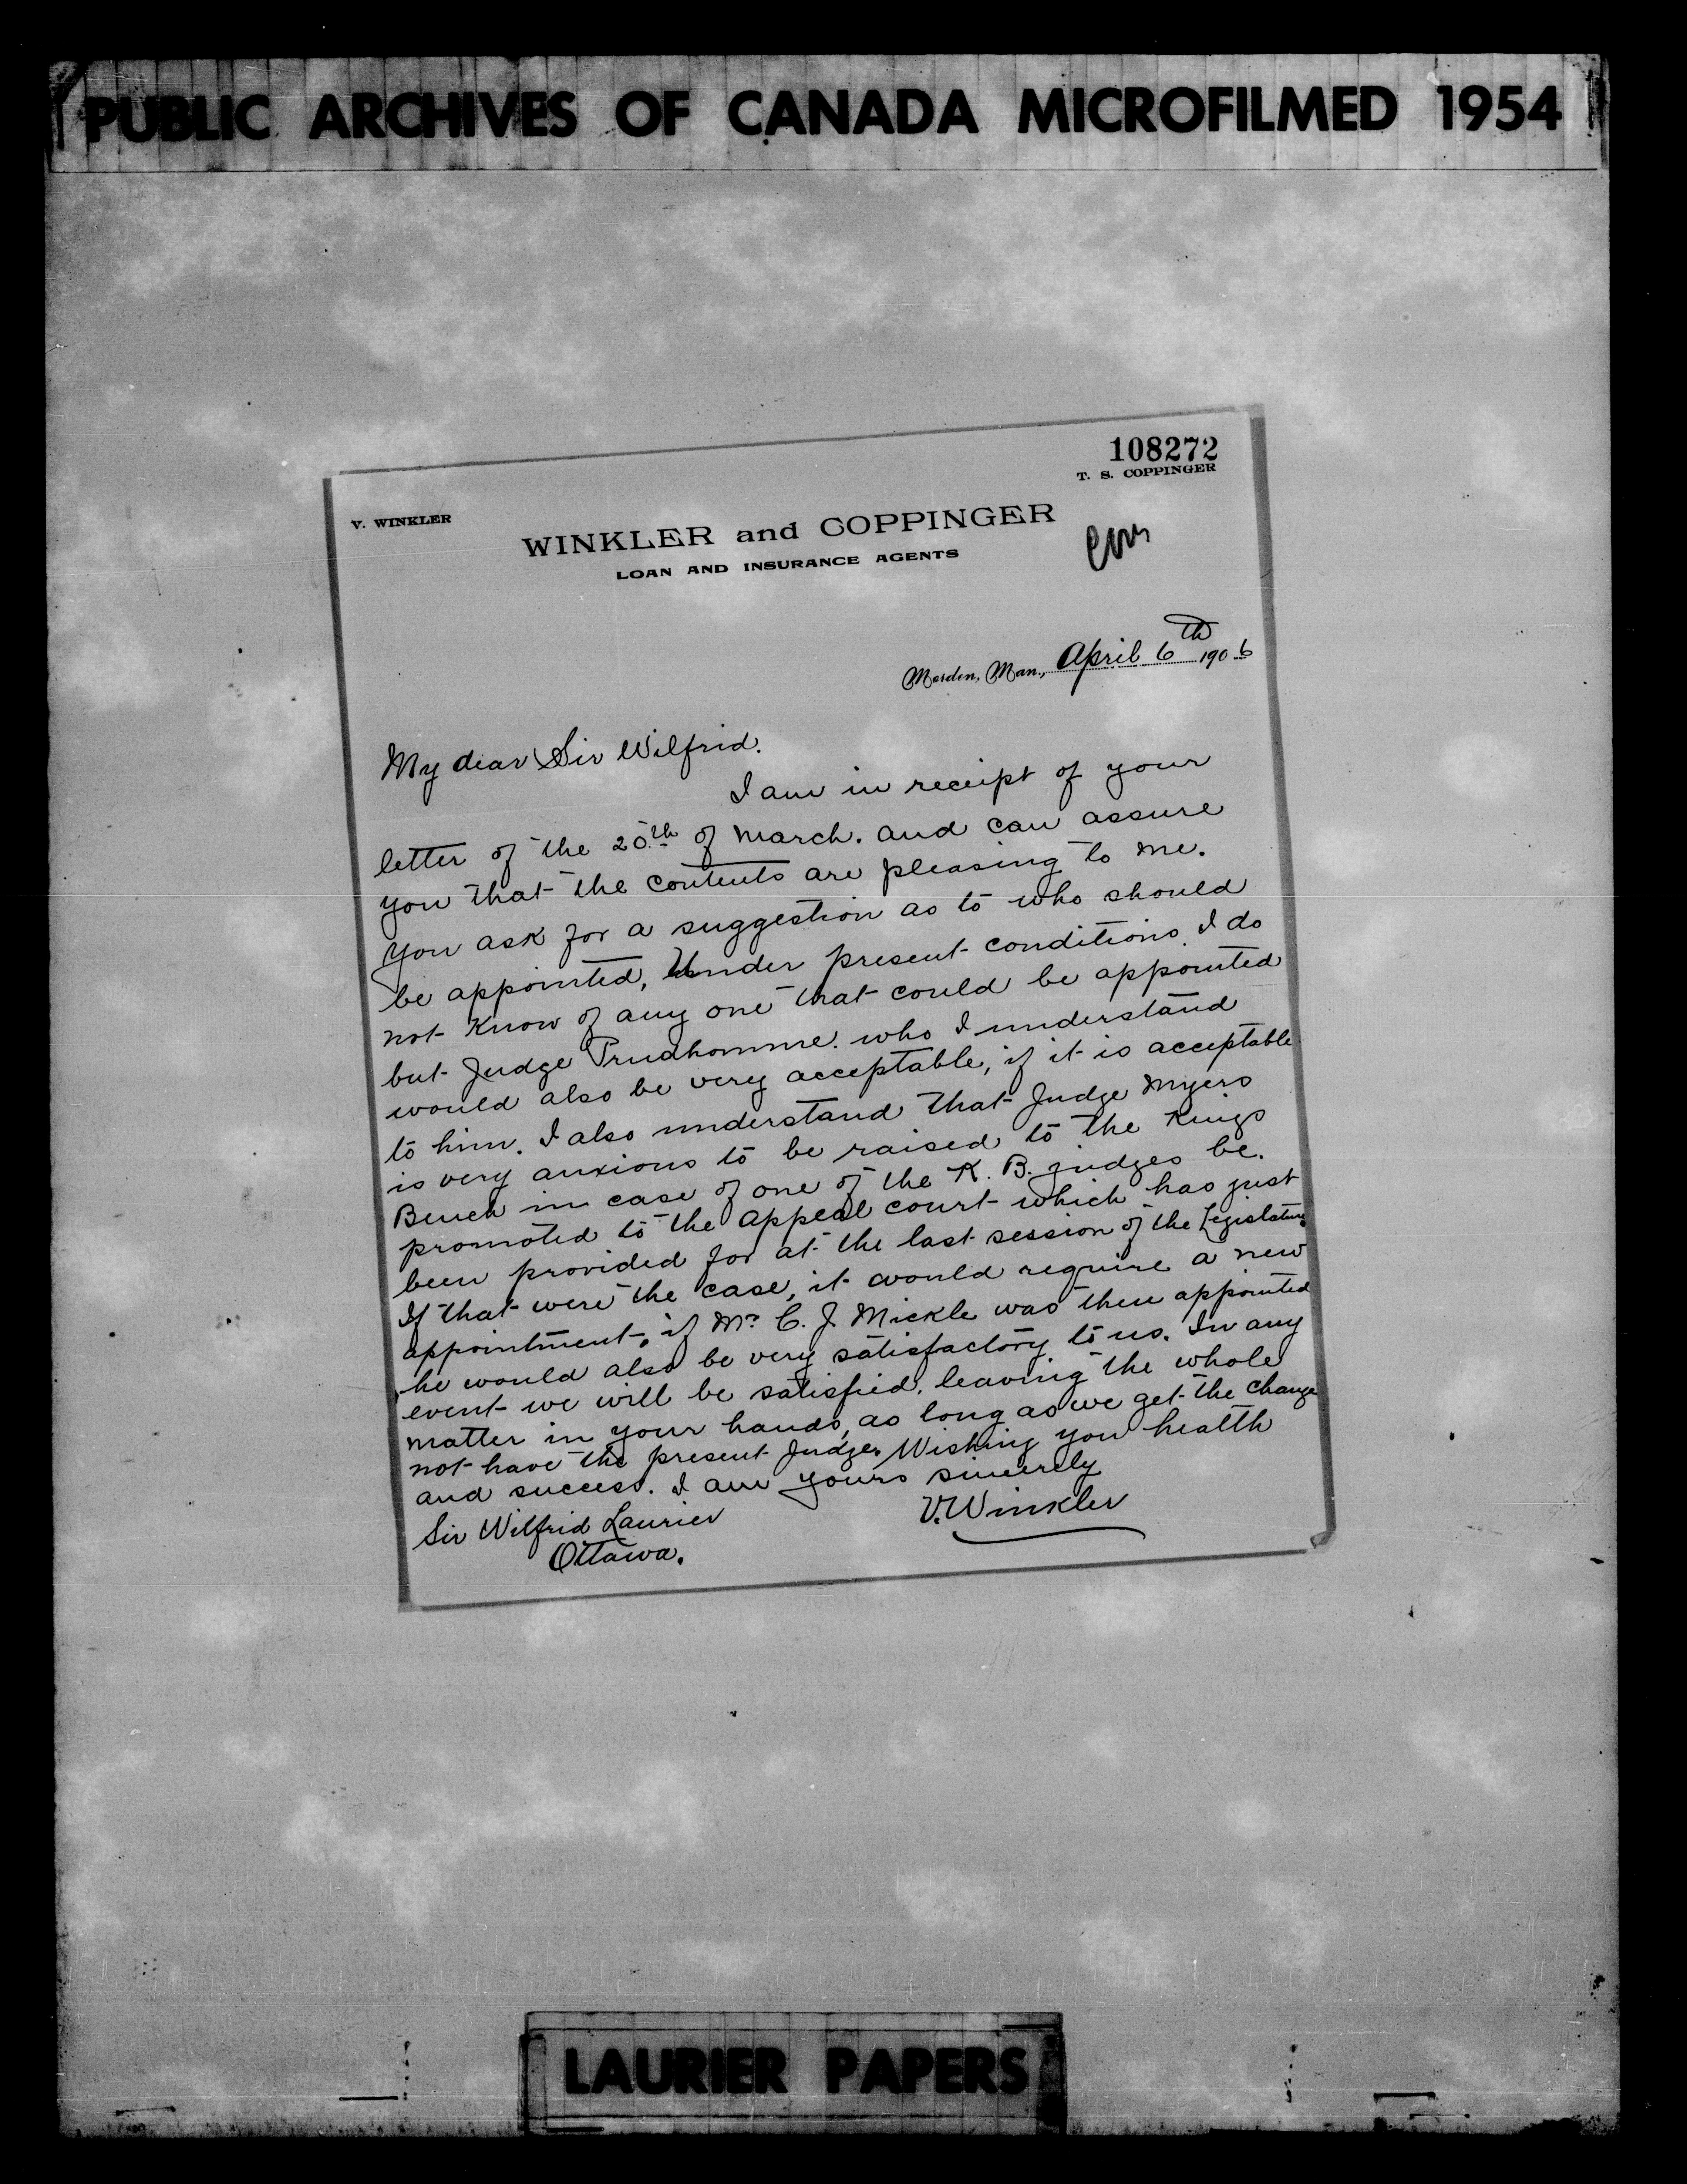 PUBLIC ARCHIVES OF CANADA MICROFILMED 1954
108272
T. S. COPPINGER
V. WINKLER
WINKLER and COPPINGER
LOAN AND INSURANCE AGENTS
Morden, Man., April 6th 1906
My dear Sir Wilfrid.
I am in receipt of your
letter of the 20th of March. and can assure
you that the contents are pleasing to me.
You ask for a suggestion as to who should
be appointed, Under present conditions I do
not know of any one that could be appointed
but Judge Prudhomme. who I understand
would also be very acceptable, if it is acceptable
to him. I also understand that Judge Myers
is very anxious to be raised to the Kings
Bench in case of one of the K. B. judges be.
promoted to the appeal court which has just
been provided for at the last session of the Legislature
If that were the case, it would require a new
appointment, if Mr. C. J. Mickle was then appointed
he would also be very satisfactory to us. In any
event we will be satisfied, leaving the whole
matter in your hands, as long as we get the change
not have the present Judge. Wishing you health
and success. I am yours sincerely
V. Winkler
Sir Wilfrid Laurier
Ottawa.
LAURIER PAPERS